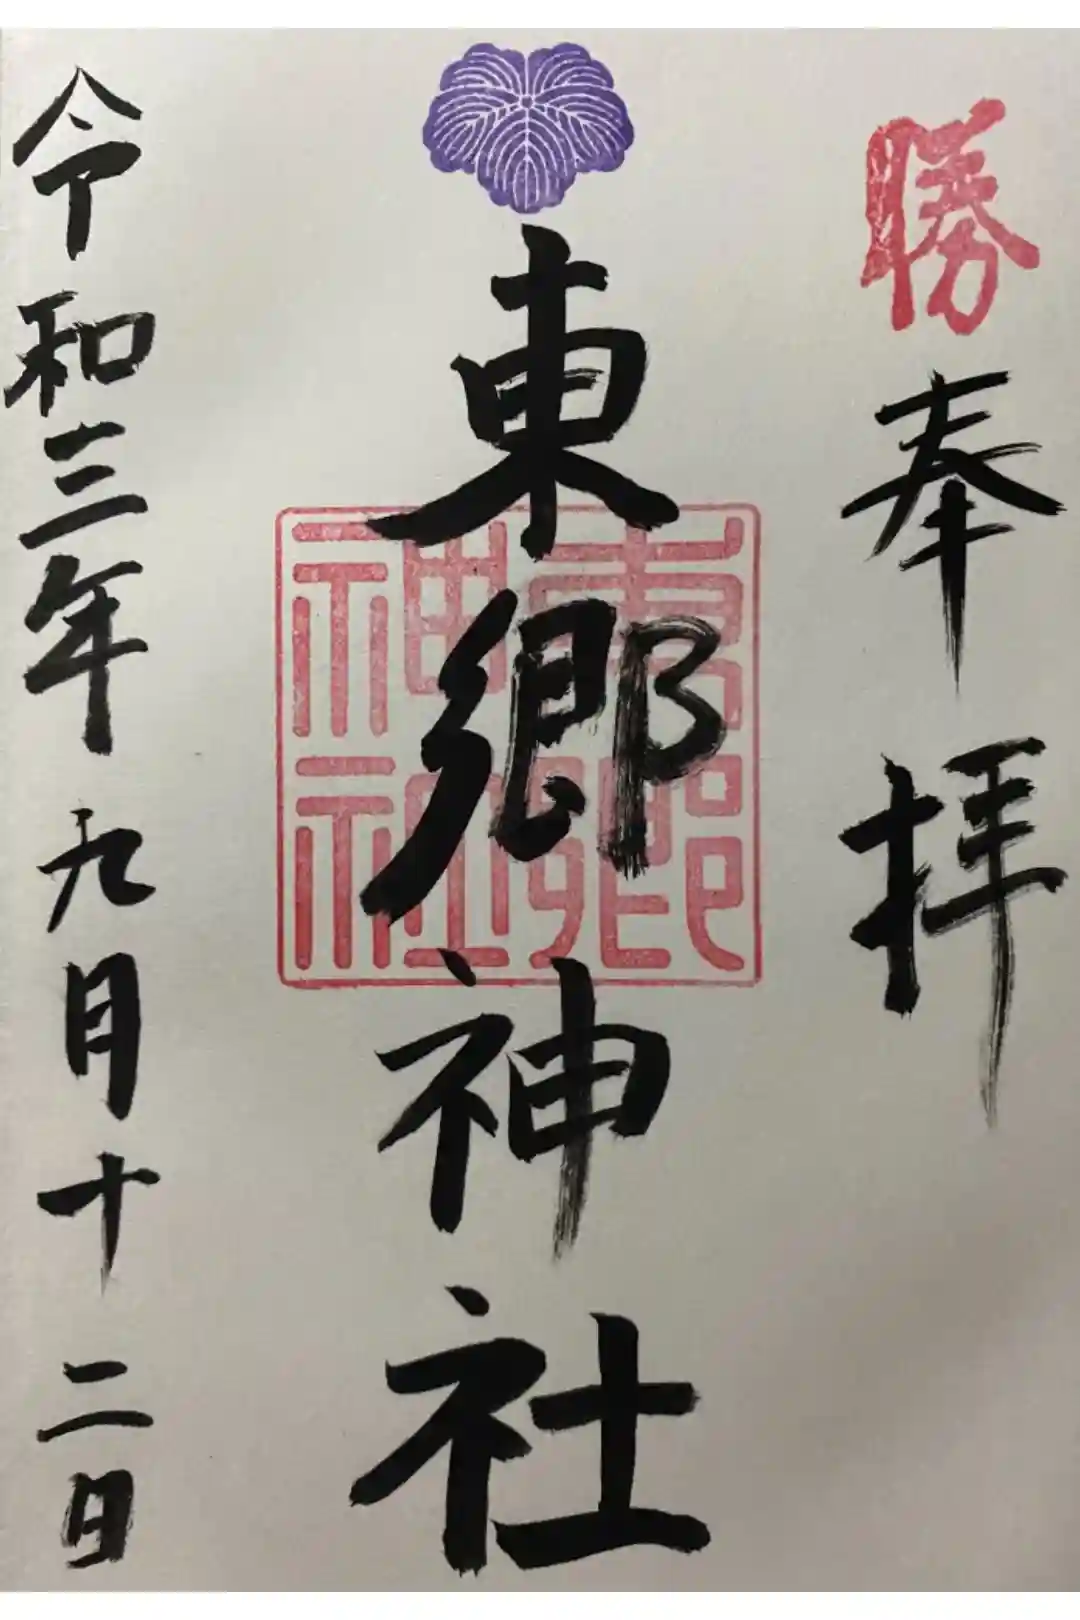 勝
奉拝
東郷神社
東郷神社
令和三年九月十二日